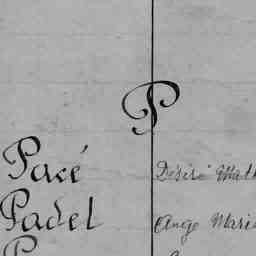 P
Pacé Désiré Math
Padel Ange Marie
P